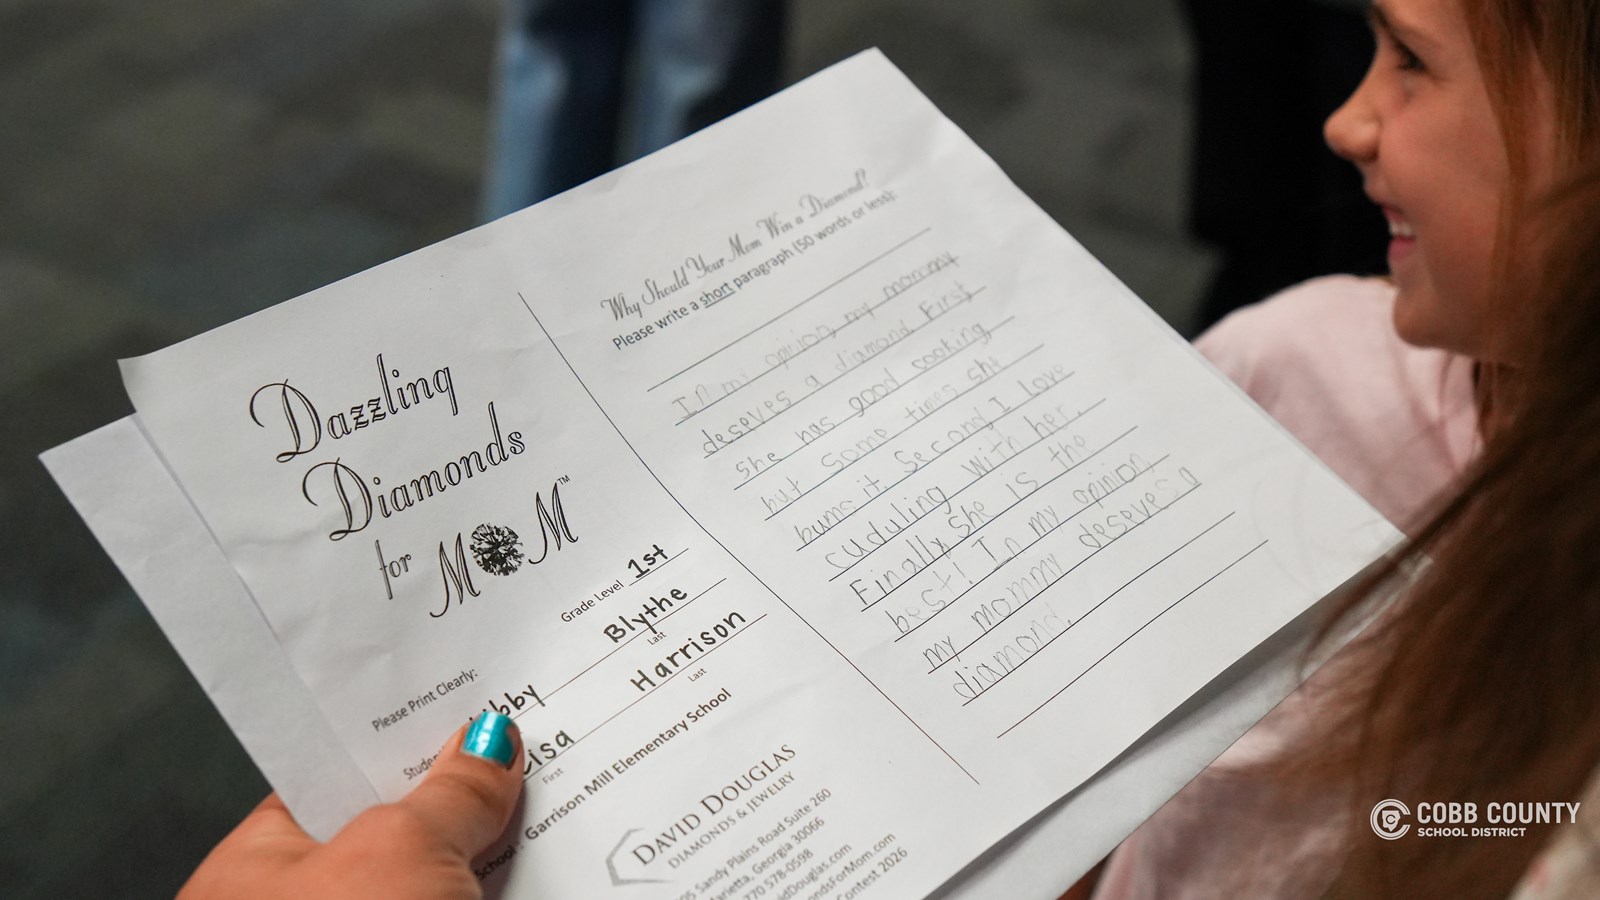 Dazzling
Diamonds
for MOM™
Please Print Clearly:
Grade Level 1st
Blythe
Last
Harrison
Last
First
School - Garrison Mill Elementary School
DAVID DOUGLAS
DIAMONDS & JEWELRY
Sandy Plains Road Suite 260
Georgia 30066
770 578-0598
Contest 2026
Why Should Your Mom Win a Diamond?
Please write a short paragraph (50 words or less):
In my opinion, my mommy
deseves a diamond. First
she has good cooking,
but some times she
burns it. Second I love
cuduling with her.
Finally she is the
best! In my opinion,
my mommy deseves a
diamond.
COBB COUNTY
SCHOOL DISTRICT